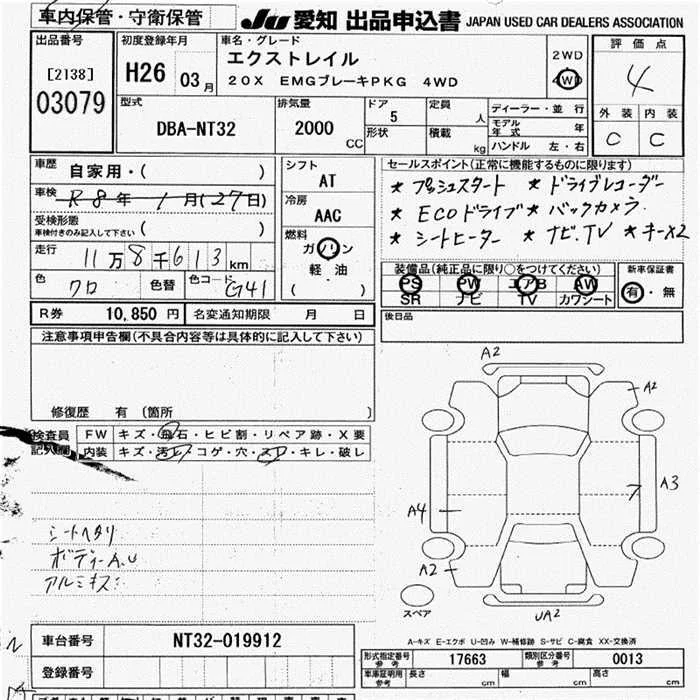 車内保管・守衛保管 JU 愛知 出品申込書 JAPAN USED CAR DEALERS ASSOCIATION
出品番号 初度登録年月 車名・グレード 評価点
[2138] H26 03月 エクストレイル 2WD
03079 20X EMGブレーキPKG 4WD 4WD 4
型式 排気量 ドア 定員 ディーラー・並行 外装 内装
DBA-NT32 2000 CC 5 人 モデル年式 年 C C
形状 積載 kg ハンドル 左・右
車歴 自家用・( ) シフト セールスポイント(正常に機能するものに限ります)
車検 R8年 1月(27日) AT ★ プッシュスタート ★ ドライブレコーダー
受検形態 冷房 ★ ECOドライブ ★ バックカメラ
車検付きのみ記入して下さい ( ) AAC ★ シートヒーター ★ ナビ.TV ★ キーX2
走行 11万8千613km 燃料 ガソリン
軽油
( )
装備品(純正品に限り○をつけてください) 新車保証書
色 クロ 色替 色コード G41 PS PW エアB AW 有・無
SR ナビ TV カワシート
R券 10,850 円 名変通知期限 月 日 後日品
注意事項申告欄(不具合内容等は具体的に記入して下さい)
修復歴 有 (箇所 )
検査員 FW キズ・飛石・ヒビ割・リペア跡・X要
記入欄 内装 キズ・汚レ・コゲ・穴・スレ・キレ・破レ
A2
A2
A3
A4
A2
シートヘタリ
ボディーA.U
アルミキズ
スペア
UA2
A-キズ E-エクボ U-凹み W-補修跡 S-サビ C-腐食 XX-交換済
車台番号 NT32-019912
形式指定番号 参考 17663 類別区分番号 参考 0013
登録番号
車庫証明用 参考 長さ cm 幅 cm 高さ cm